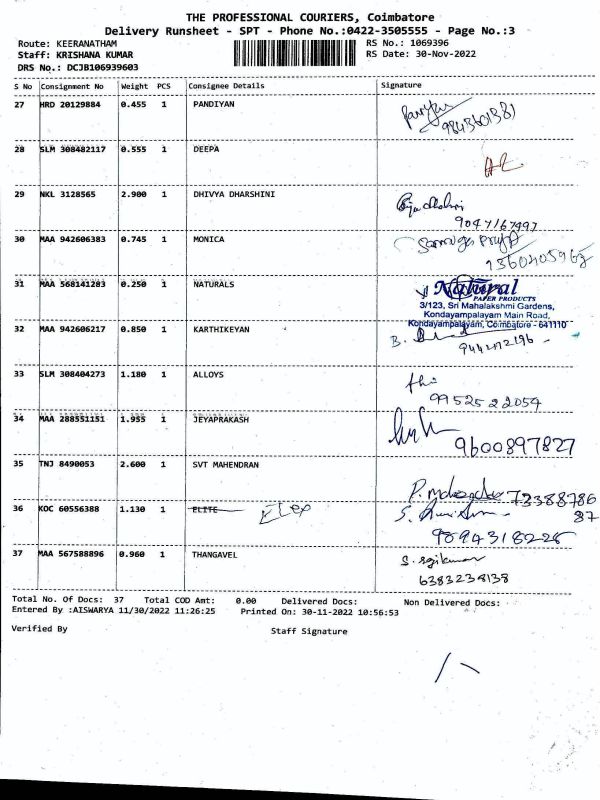 THE PROFESSIONAL COURIERS, Coimbatore
Delivery Runsheet - SPT - Phone No.:0422-3505555 - Page No.:3
Route: KEERANATHAM RS No.: 1069396
Staff: KRISHANA KUMAR RS Date: 30-Nov-2022
DRS No.: DCJB106939603
S No Consignment No Weight PCS Consignee Details Signature
27 HRD 20129884 0.455 1 PANDIYAN
9843601381
28 SLM 308482117 0.555 1 DEEPA
29 NKL 3128565 2.900 1 DHIVYA DHARSHINI
9047167497
30 MAA 942606383 0.745 1 MONICA
31 MAA 568141283 0.250 1 NATURALS
Natural
PAPER PRODUCTS
3/123, Sri Mahalakshmi Gardens,
Kondayampalayam Main Road,
Kondayampalayam, Coimbatore - 641110
32 MAA 942606217 0.850 1 KARTHIKEYAN
B.
33 SLM 308404273 1.180 1 ALLOYS
9952522054
34 MAA 288551151 1.955 1 JEYAPRAKASH
9600897827
35 TNJ 8490053 2.600 1 SVT MAHENDRAN
7338878687
36 KOC 60556388 1.130 1 ELITE
9894318225
37 MAA 567588896 0.960 1 THANGAVEL
6383234138
Total No. Of Docs: 37 Total COD Amt: 0.00 Delivered Docs: Non Delivered Docs:
Entered By :AISWARYA 11/30/2022 11:26:25 Printed On: 30-11-2022 10:56:53
Verified By Staff Signature